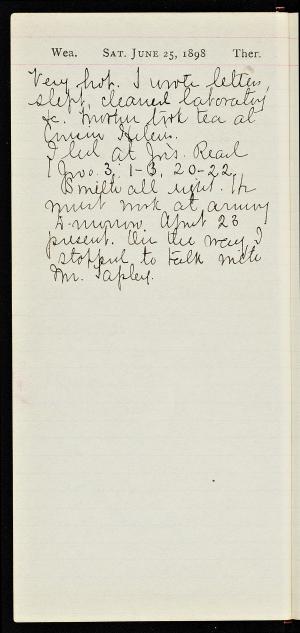 Wea. SAT. JUNE 25, 1898 Ther.
Very hot. I wrote letters,
slept, cleaned laboratory
&c. Mother took tea at
Cousin Helens.
I led at Jrs. Read
1 Jno. 3, 1-3, 20-22,
Bmith all right. He
must work at armory
to-morrow. Abput 23
present. On the way, I
stopped to talk with
Mr. Tapley.